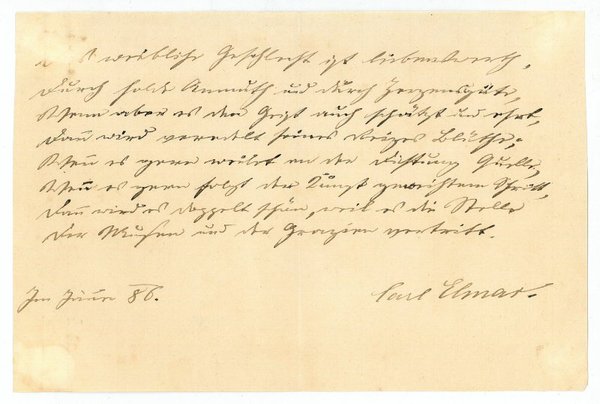 weibliche Geschlecht ist liebenswerth,
Durch holde Anmuth und durch Herzensgüte,
Wenn aber es den Geist auch schätzt und ehrt,
Dann wird veredelt seines Reizes Blüthe;
Wenn es gern weilet an der Dichtung Quelle,
Wenn es gern folgt der Kunst geweihtem Schritt,
Dann wird es doppelt schön, weil es die Stelle
Der Musen und der Grazien vertritt.
Im 86.
Carl Elmar.